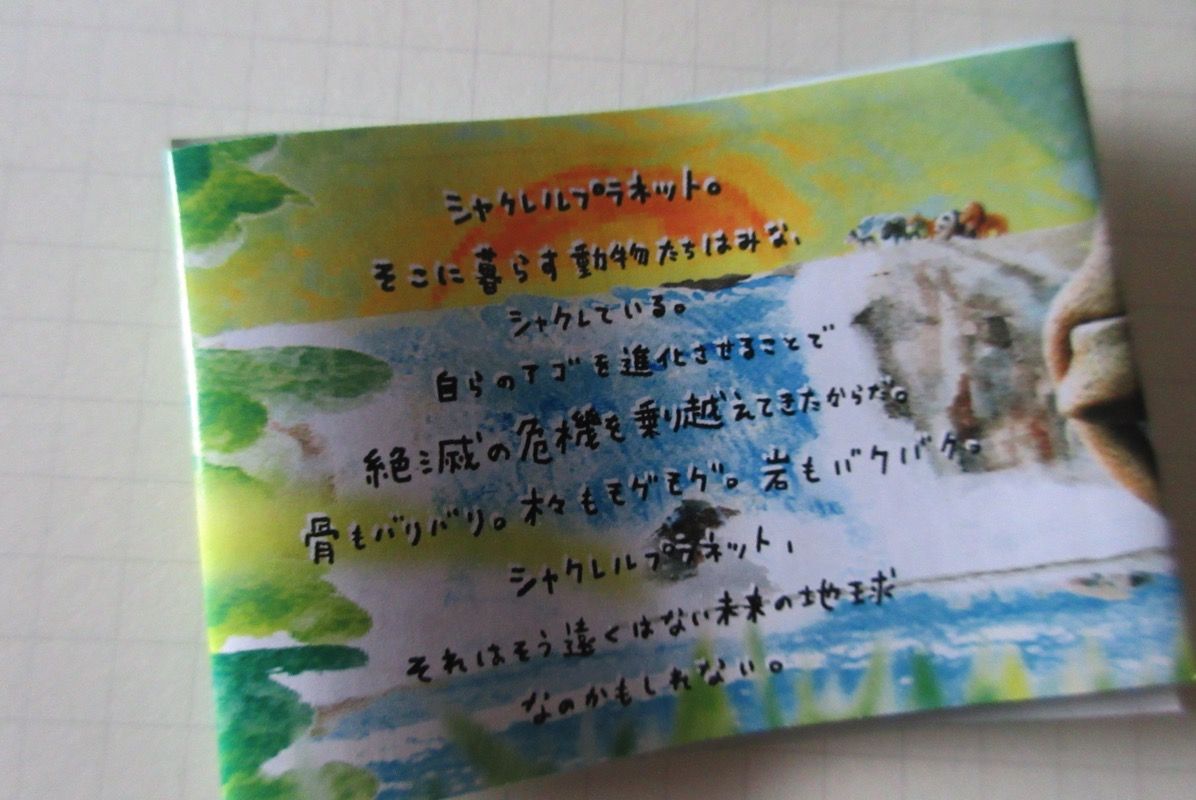 シャクレルプラネット。
そこに暮らす動物たちはみな、
シャクレている。
自らのアゴを進化させることで
絶滅の危機を乗り越えてきたからだ。
骨もバリバリ。木々もモゲモゲ。岩もバクバク。
シャクレルプラネット、
それはそう遠くはない未来の地球
なのかもしれない。